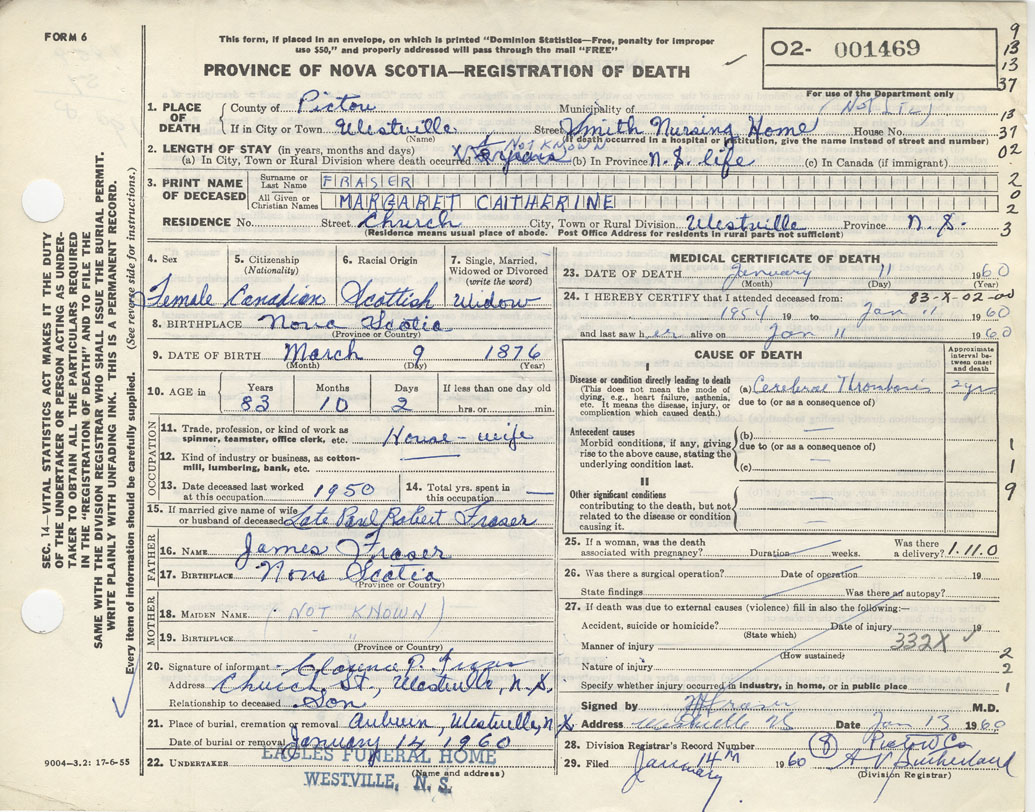 FORM 6
This form, if placed in an envelope, on which is printed "Dominion Statistics—Free, penalty for improper
use $50," and properly addressed will pass through the mail "FREE"
PROVINCE OF NOVA SCOTIA—REGISTRATION OF DEATH
O2- 001469
For use of the Department only
9
13
13
37
13
37
02
2
0
2
3
SEC. 14—VITAL STATISTICS ACT MAKES IT THE DUTY
OF THE UNDERTAKER OR PERSON ACTING AS UNDER-
TAKER TO OBTAIN ALL THE PARTICULARS REQUIRED
IN THE "REGISTRATION OF DEATH" AND TO FILE THE
SAME WITH THE DIVISION REGISTRAR WHO SHALL ISSUE THE BURIAL PERMIT.
WRITE PLAINLY WITH UNFADING INK. THIS IS A PERMANENT RECORD.
Every item of information should be carefully supplied. (See reverse side for instructions.)
1. PLACE OF DEATH County of Pictou Municipality of
If in City or Town Westville Street Smith Nursing Home House No.
(Name) (If death occurred in a hospital or institution, give the name instead of street and number)
2. LENGTH OF STAY (in years, months and days) NOT KNOWN
(a) In City, Town or Rural Division where death occurred years (b) In Province N.S. life (c) In Canada (if immigrant)
3. PRINT NAME OF DECEASED Surname or Last Name FRASER
All Given or Christian Names MARGARET CATHERINE
RESIDENCE No. Street Church City, Town or Rural Division Westville Province N.S.
(Residence means usual place of abode. Post Office Address for residents in rural parts not sufficient)
4. Sex 5. Citizenship (Nationality) 6. Racial Origin 7. Single, Married, Widowed or Divorced (write the word)
Female Canadian Scottish Widow
8. BIRTHPLACE Nova Scotia
(Province or Country)
9. DATE OF BIRTH March 9 1876
(Month) (Day) (Year)
10. AGE in Years Months Days If less than one day old
83 10 2 hrs. or min.
OCCUPATION
11. Trade, profession, or kind of work as spinner, teamster, office clerk, etc. House-wife
12. Kind of industry or business, as cotton-mill, lumbering, bank, etc. —
13. Date deceased last worked at this occupation 1950 14. Total yrs. spent in this occupation —
15. If married give name of wife or husband of deceased Late Paul Robert Fraser
FATHER
16. NAME James Fraser
17. BIRTHPLACE Nova Scotia
(Province or Country)
MOTHER
18. MAIDEN NAME (NOT KNOWN)
19. BIRTHPLACE "
(Province or Country)
20. Signature of informant Clarence P. Fraser
Address Church St., Westville, N.S.
Relationship to deceased Son
21. Place of burial, cremation or removal Auburn, Westville, N.S.
Date of burial or removal January 14 1960
22. UNDERTAKER EAGLES FUNERAL HOME
WESTVILLE, N. S.
(Name and address)
9004-3.2: 17-6-55
MEDICAL CERTIFICATE OF DEATH
23. DATE OF DEATH January 11 1960
(Month) (Day) (Year)
24. I HEREBY CERTIFY that I attended deceased from: 83-X-02-00
1954 19 to Jan 11 1960
and last saw her alive on Jan 11 1960
CAUSE OF DEATH
Approximate interval between onset and death
I
Disease or condition directly leading to death (a) Cerebral Thrombosis 2 yrs
(This does not mean the mode of dying, e.g., heart failure, asthenia, etc. It means the disease, injury, or complication which caused death.) due to (or as a consequence of)
Antecedent causes (b) —
Morbid conditions, if any, giving rise to the above cause, stating the underlying condition last. due to (or as a consequence of)
(c) —
II
Other significant conditions —
contributing to the death, but not related to the disease or condition causing it. —
1
1
9
25. If a woman, was the death associated with pregnancy? Duration weeks. Was there a delivery? 1.11.0
26. Was there a surgical operation? Date of operation 19
State findings Was there an autopsy?
27. If death was due to external causes (violence) fill in also the following:—
Accident, suicide or homicide? Date of injury 19
(State which)
Manner of injury 332X
(How sustained)
Nature of injury
Specify whether injury occurred in industry, in home, or in public place
2
2
1
Signed by Fraser M.D.
Address Westville NS Date Jan 13 1960
28. Division Registrar's Record Number (8) Pictou Co.
29. Filed January 14th 1960 A V Sutherland
(Division Registrar)